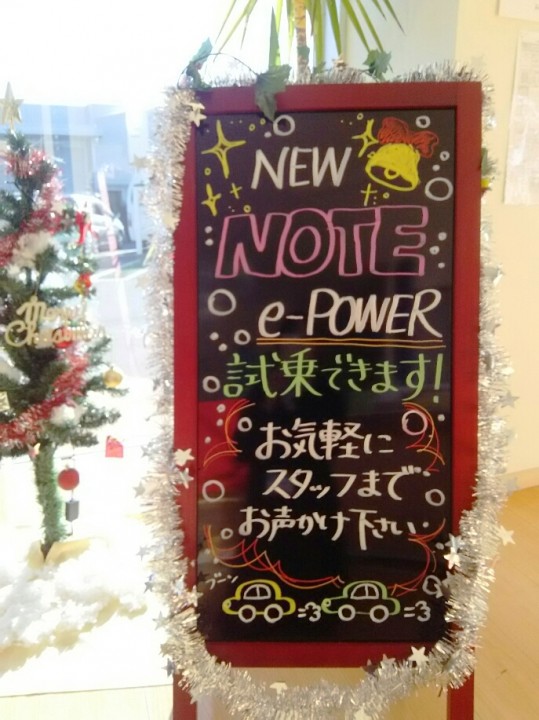 NEW
NOTE
e-POWER
試乗できます!
お気軽に
スタッフまで
お声かけ下さい
ブーン
Merry
Christmas